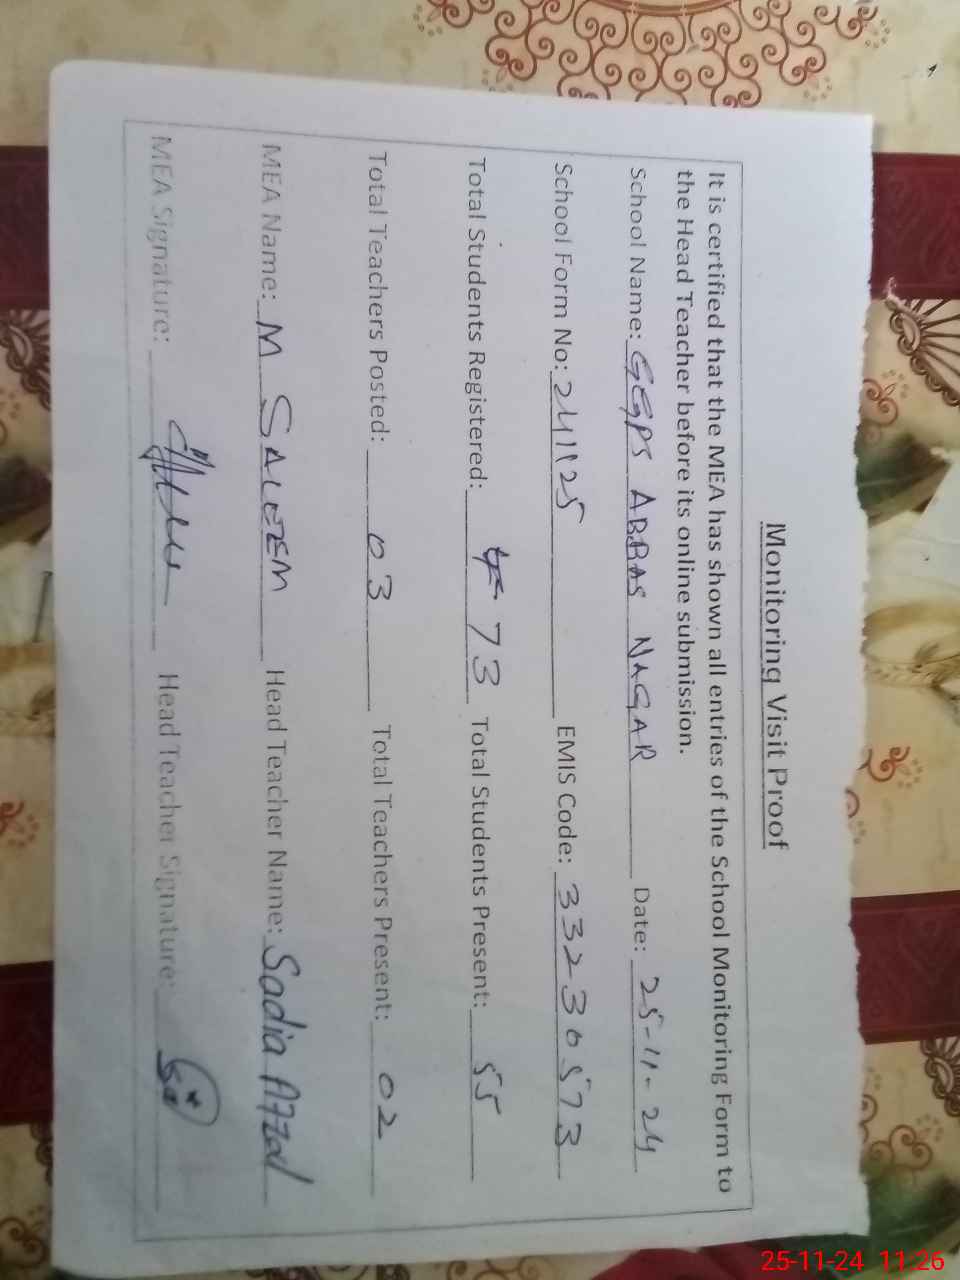 Monitoring Visit Proof
It is certified that the MEA has shown all entries of the School Monitoring Form to
the Head Teacher before its online submission.
School Name: GGPS ABBAS NAGAR Date: 25-11-24
School Form No: 241125 EMIS Code: 33230573
Total Students Registered: 73 Total Students Present: 55
Total Teachers Posted: 03 Total Teachers Present: 02
MEA Name: M SALEEM Head Teacher Name: Sadia Afzal
MEA Signature: Head Teacher Signature:
25-11-24 11:26